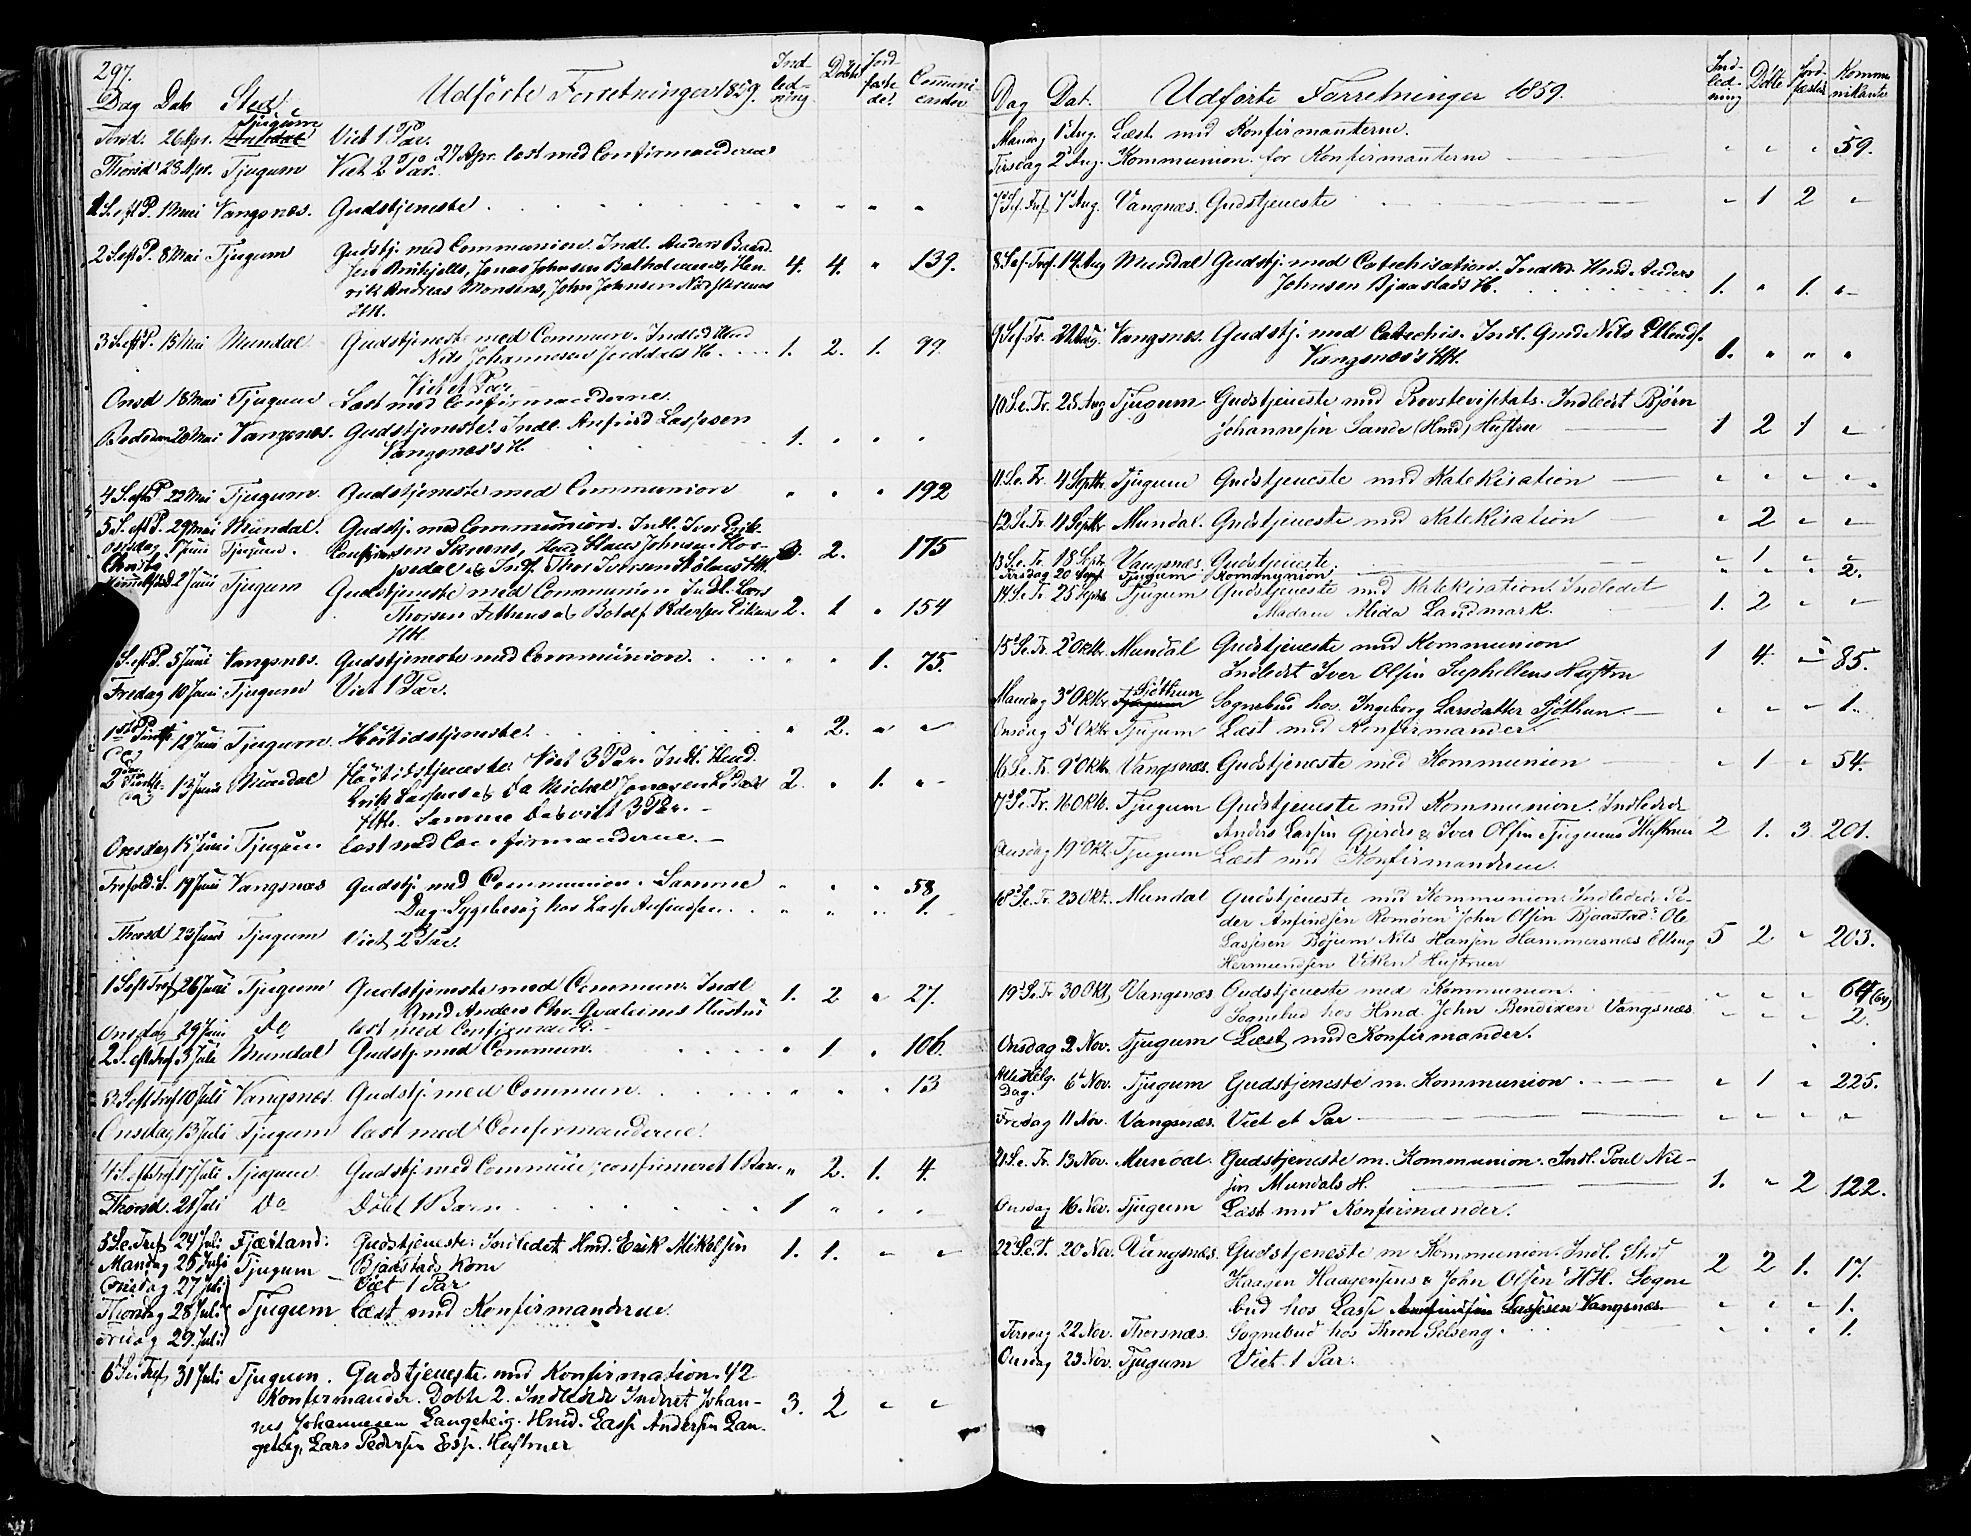 297.
Dag Dato Sted Udførte Forretninger 1859. Ind-led-ning. Døbte Jord-fæste-de. Communi-canter
Tirsd. 26 Apr. Tjugum Viet 1 Par.
27 Apr. læst med Confirmanderne
Thorsd. 28 Apr. Tjugum Viet 2 Par.
1 S. eft P. 1 Mai Vangsnes. Gudstjeneste . . . " " " "
2 S. eft P. 8 Mai Tjugum Gudstj. med Communion. Indl. Anders Baard-
Jonas Johnsen Balholmens, Hen- 4. 4. " 139.
rik Andreas Monsens, John Johnsen
HH.
3 S. eft P. 15 Mai Mundal Gudstjeneste med Commun. Indled.
Nils Johannesen H. . . . 1. 2. 1. 99.
Viet et Par
Onsd 18 Mai Tjugum Læst med Confirmanderne.
Bededag 20 Mai Vangsnes. Gudstjeneste. Indl. Anfind Lassesen
Vangsnes's H. 1. " " "
4 S. eft P. 22 Mai Tjugum. Gudstjeneste med Communion " " " 192
5 S. eft P. 29 Mai Mundal. Gudstj. med Communion. Indl. Iver Erik-
Onsdag 1 Juni Tjugum. sen Johnsen Hos- 3. 2. " 175
pedal & Indl. Thor Iversen HH.
Christi Himmelf. d 2 Juni Tjugum Gudstjeneste med Communion. Indl. Lars
Thorsen & Botolf Pedersen 2. 1 " 154
HH.
S. eft P. 5 Juni Vangsnes. Gudstjeneste med Communion. . . . " " 1. 75.
Fredag 10 Juni Tjugum Viet 1 Par.
1ste Pintse Dag 12 Juni Tjugum. Høitidstjeneste. . . . " 2. " "
2den Pintse-dag 13 Juni Mundal Høitidstjeneste. Viet 3 Par. Indl.
Erik & Michel Jonasen 2. " 1. "
Hh. Samme Dag viet 3 Par. -
Onsdag 15 Juni Tjugum læst med Confirmanderne. -
Trefold. S. 19 Juni Vangsnes Gudstj. med Communion. Samme " " " 58.
Dag Sygebesøg hos Lasse Anfindsen . . " " " 1.
Thorsd 23 Juni Tjugum Viet 2 Par.
1 S eft Tref 26 Juni Tjugum Gudstjeneste med Commun. Indl
Gmd Anders Chr. Hustru 1. 2 " 27.
Onsdag 29 Juni do læst med Confirmand. -
2. S. eft tref 3 Juli Mundal Gudstj. med Commun. . . . " 1 " 106.
3. S eft tref 10 Juli Vangsnes. Gudstj. med Commun. . . . " " " 13
Onsdag 13 Juli Tjugum læst med Confirmanderne.
4 S. eft tref. 17 Juli Tjugum Gudstj. med Commun; confirmeret 1 Barn. " 2. 1. 4.
Thorsd. 21 Juli do Døbt 1 Barn . . . 1 " " "
5 Se. Tref. 24 Juli Fjærland: Gudstjeneste: Indledet Hmd. Erik Mikelsen 1. 1. " "
Mandag 25 Juli Tjugum Bjåstads Kone
Onsdag 27 Juli — Viet 1 Par
Thorsdag 28 Juli Tjugum læst med Konfirmanderne.
Fredag 29. Juli
6 Se. Tref. 31 Juli Tjugum. Gudstjeneste med Konfirmation. 42
Konfirmander. Døbte 2. Indledede Inderst Johan-
nes Johannesen Langeteig. Hmd. Lasse Andersen Lan- 3. 2 " "
geteig, Lars Pedersen Esse. Hustruer
Dag Dat. Udførte Forretninger 1859. Ind-led-ning Døbte Jord-fæstet Kommu-nikanter
Mandag 1 Aug. Læst med Konfirmanterne.
Tirsdag 2 Aug. Kommunion for Konfirmanterne — " " " 59.
7 S. ef. Tref 7 Aug. Vangnæs. Gudstjeneste — " 1 2 "
8 S. ef. Tref. 14 Aug Mundal Gudstj. med Catechisation. Indl. Hmd Anders
Johnsen Bjaastads H. 1. " 1. "
9 S. ef. Tr. 21 Aug. Vangsnes. Gudstj. med Catechis. Indl. Gmd Nils Ellends.
Vangsnes's HH. 1. " " "
10 S. e. Tr. 28 Aug Tjugum Gudstjeneste med Provstevisitats. Indledt Bjørn
Johannesen Sande (Hmd) Hustru — 1 2 1 "
11 S. e. Tr. 4 Septbr. Tjugum Gudstjeneste med Katekisation — " " " "
12 S. e. Tr. 11 Septbr Mundal. Gudstjeneste med Katekisation " 2 " "
13 S. e. Tr. 18 Septr. Vangsnæs. Gudstjeneste. — " 1 " "
Tirsdag 20 Sept Tjugum Kommunion. — " " " 2.
14 S. e. Tr 25 Septbr Tjugum Gudstjeneste med Katekisation. Indledet
Madame Alida Landmark. 1. 2 " "
15 S. e. Tr. 2 Oktbr. Mundal Gudstjeneste med Kommunion
Indledt Iver Olsen Suphellens Hustru 1 4. " 85.
Mandag 3 Oktbr. Sjøthun Sognebud hos Ingeborg Larsdatter Sjøthun. — " " " 1.
Onsdag 5 Oktbr. Tjugum Læst med Konfirmander.
16 S. e. Tr. 9 Oktbr. Vangsnæs. Gudstjeneste med Kommunion — " 1 " 54.
17 S. e. Tr. 16 Oktb. Tjugum Gudstjeneste med Kommunion. Indledede
Anders Larsen Gjerde & Iver Olsen Tjugums Hustruer 2 1. 3. 201.
Onsdag 19 Okt. Tjugum Læst med Konfirmanderne.
18 S. e. Tr. 23 Okt. Mundal Gudstjeneste med Kommunion: Indledede Pe-
der Anfindsen Romøren John Olsen Bjaastad. Ole
Lassesen Bøjum Nils Hansen Hammersnæs Elling 5 2 " 203.
Hermundsen Viken Hustruer
19 S. e. Tr 30 Okt, Vangsnæs. Gudstjeneste med Kommunion. " " " 64 (64)
Sognebud hos Hmd. John Bendixen Vangsnæs. " " " 2.
Onsdag 2 Nov. Tjugum Læst med Konfirmander.
Alle Helg. Dag. 6 Nov. Tjugum Gudstjeneste m. Kommunion. — " 1 " 225.
Fredag 11 Nov. Vangsnæs. Viet et Par — " " " "
21 S. e. Tr. 13 Nov. Mundal. Gudstjeneste m. Kommunion. Indl. Poul Niel-
sen Mundals H. — 1. " 2 122.
Onsdag 16 Nov. Tjugum Læst med Konfirmander.
22 S. e. T. 20 Nov. Vangsnæs. Gudstjeneste m Kommunion. Indl.
Haagen Haagensens & John Olsen HH. Sogne 2 2 1. 17.
bud hos Lasse Anfindsen Lassesen Vangsnæs " " " 1.
Tirsdag 22 Nov. Thorsnæs. Sognebud hos Selseng. " " " 1.
Onsdag 23 Nov. Tjugum Viet 1 Par.